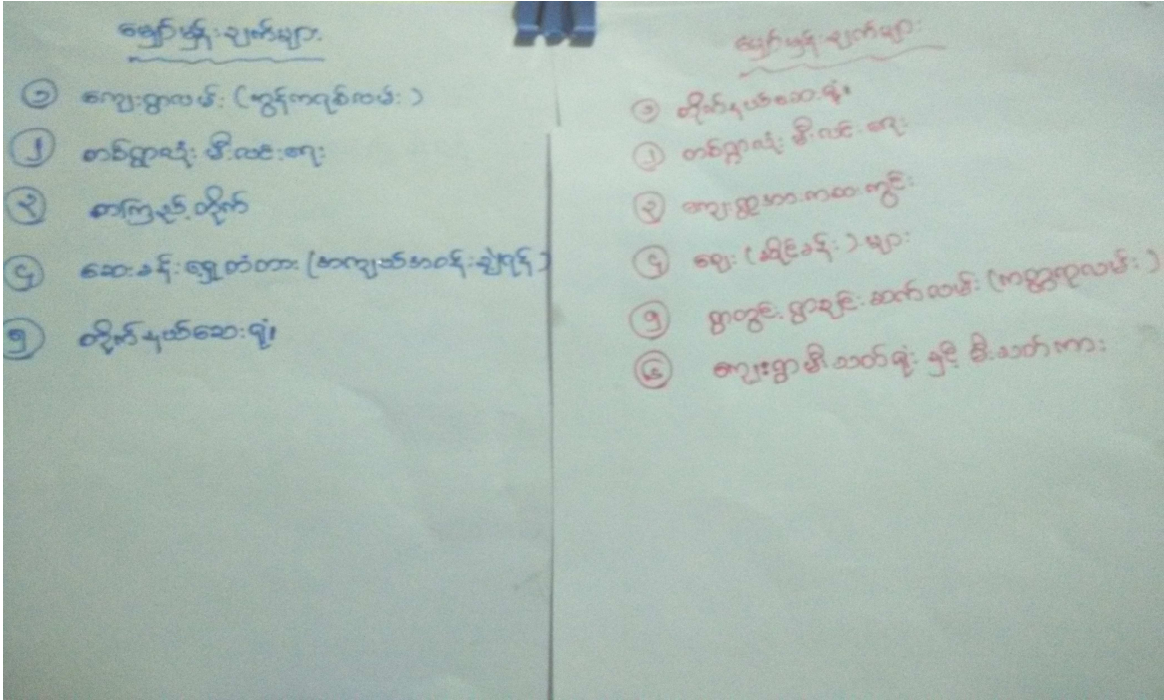 မျှော်မှန်းချက်များ
၁ ကျေးရွာလမ်း (ကွန်ကရစ်လမ်း)
၂ တစ်ရွာလုံး မီးလင်းရေး
၃ စာကြည့်တိုက်
၄ ဆေးခန်းရှေ့တံတား (အကျယ်အဝန်းချဲ့ရန်)
၅ တိုက်နယ်ဆေးရုံ
မျှော်မှန်းချက်များ
၁ တိုက်နယ်ဆေးရုံ
၂ တစ်ရွာလုံး မီးလင်းရေး
၃ ကျေးရွာအားကစားကွင်း
၄ ဈေး (ဆိုင်ခန်း) များ
၅ ရွာတွင်း ရွာချင်းဆက်လမ်း (ကတ္တရာလမ်း)
၆ ကျေးရွာမီးသတ်ရုံး နှင့် မီးသတ်ကား